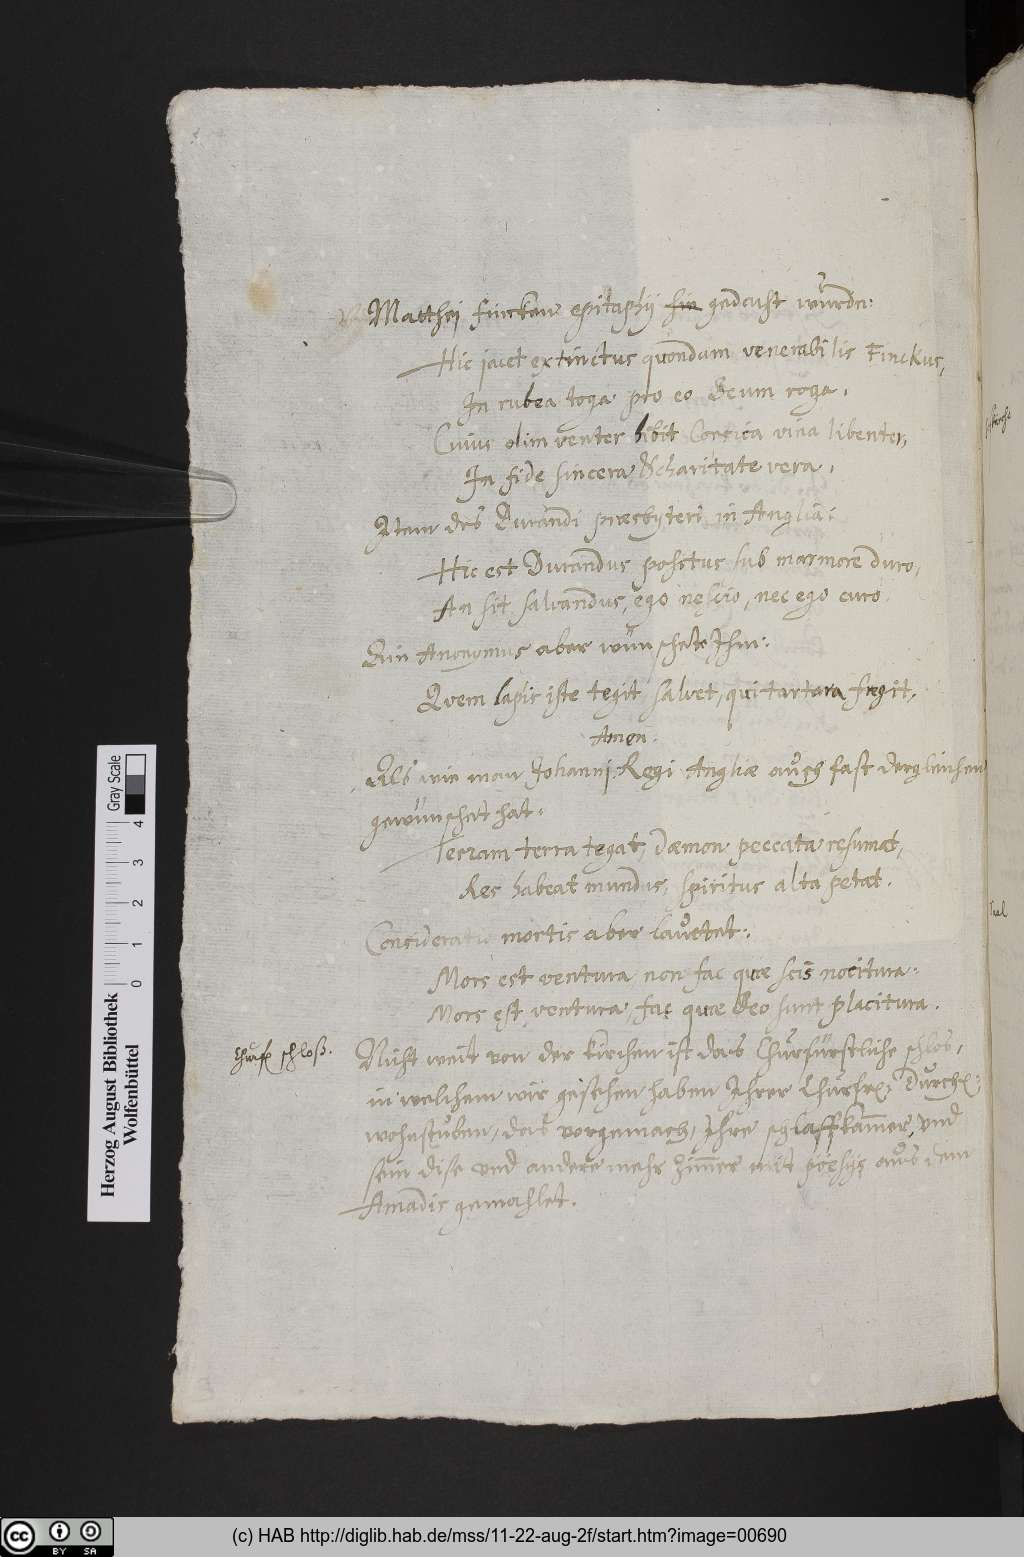 Matthej Finckens epitaphij hie gedacht würde:
Hic jacet extinctus quondam venerabilis Finckus,
In rubea toga pro eo Deum roga.
Cuius olim venter bibit Corsica vina libenter,
In fide sincera & charitate vera.
Item des Durandi presbyteri in Anglia:
Hic est Durandus positus sub marmore duro,
An sit salvandus, ego nescio, nec ego curo.
Ein Anonymus aber wünschete Ihm:
Qvem lapis iste tegit, salvet, qui tartara fregit,
Amen.
Als wie man Johannj Regi Angliæ auch fast dergleichen
gewünschet hat.
Terram terra tegat, Dæmon peccata resumat,
Res habeat mundus, spiritus alta petat.
Consideratio mortis aber lautet:
Mors est ventura, non fac quæ scis nocitura:
Mors est ventura, fac quæ Deo sunt placitura.
Churf. schloß.
Nicht weit von der kirchen ist das Churfürstliche schlos,
in welchem wir gesehen haben Ihrer Churfr. Durchl.
wohnstuben, das vorgemach, Ihre schlaffkammer, und
sein dise und andere mehr zimmer mit poesijs aus dem
Amadis gemahlet.
Herzog August Bibliothek
Wolfenbüttel
0 1 2 3 4
Gray Scale
cc BY SA
(c) HAB http://diglib.hab.de/mss/11-22-aug-2f/start.htm?image=00690